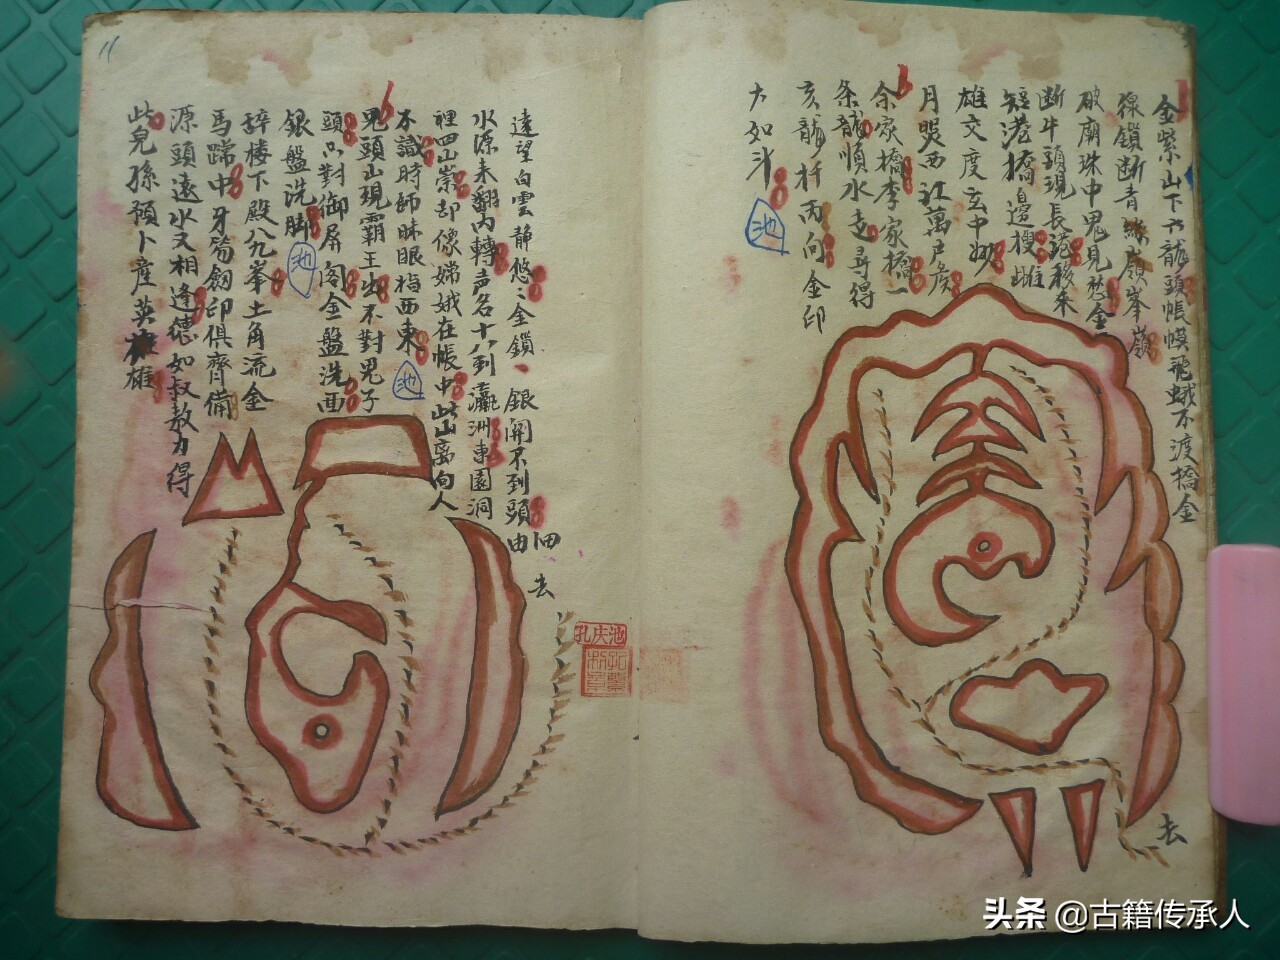 金紫山下六龍頭帳幙飛蛾不渡橋金
線鎖斷青絲嶺峯嶺
破廟珠中鬼見愁金
断牛頭現長蛇移来
短港橋邊搜雌
雄交度玄中妙
月㷼西江萬戸侯
余家橋李家橋一
条龍順水走尋得
亥龍扦丙向金印
大如斗
池
遠望白雲靜悠〻金鎖一銀開不到頭由
水源来翻内轉声名十八到瀛洲東園洞
裡四山崇却像嫦娥在帳中此山离向人
不識時師昧眼指西東
池
鬼頭山現霸王出不對鬼子
頭只對御屏閣金盤洗面
銀盤洗脚
池
辞楼下殿八九峯土角流金
馬蹄中牙笏劒印俱齊備
源頭遠水又相逢德如叔敖力得
此皃孫預卜産英雄
田
去
去
池庆孔
11
头条 @古籍传承人